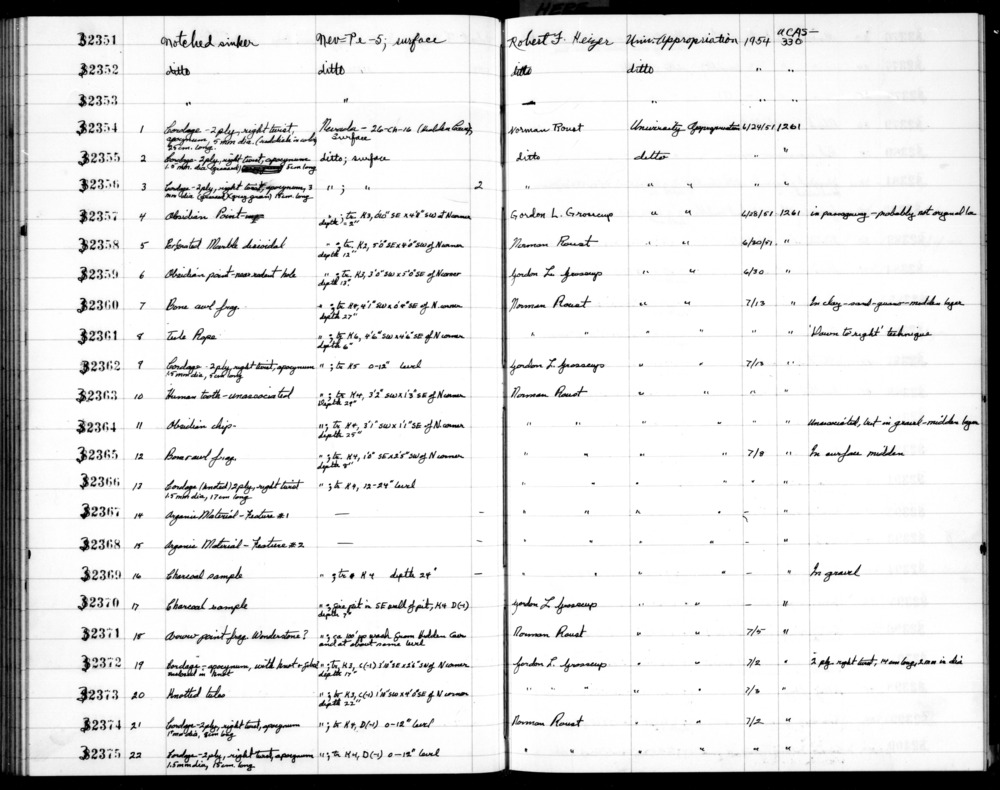 HERE
32351 notched sinker Nev-Pe-5; surface Robert F. Heizer Univ. Appropriation 1954 UCAS-330
32352 ditto ditto ditto ditto " "
32353 " " " " "
32354 1 Cordage - 2 ply, right twist, Nevada - 26-Ch-16 (Hidden Cave), Norman Roust University Appropriation 6/24/51 1261
apocynum, 5 mm dia. Surface
25 cm. long
32355 2 Cordage - 2 ply, right twist, apocynum ditto; surface ditto ditto " "
5 cm long
32356 3 Cordage - 2 ply, right twist, apocynum, 3 "; " 2 " " " " "
mm dia long
32357 4 Obsidian Point SE x 4'8" SW of N corner Gordon L. Grosscup " " 6/28/51 1261 in passageway - probably not original loc
depth
32358 5 Perforated Marble discoidal "; tr. H3, 5'0" SE x 4'0" SW of N corner Norman Roust " " 6/30/51 "
depth 12"
32359 6 Obsidian point - near rodent hole "; tr. H3, 3'0" SW x 5'0" SE of N corner Gordon L. Grosscup " " 6/30 "
depth 13"
32360 7 Bone awl frag. "; tr H4, 4'1" SW x 0'4" SE of N. corner Norman Roust " " 7/13 " In clay-sand-guano-midden layer
depth 27"
32361 8 Tule Rope "; tr H6, 4'6" SW x 4'6" SE of N corner " " " " " " 'Down to right' technique
depth 6"
32362 9 Cordage - 2 ply, right twist, apocynum "; tr H5 0-12" level Gordon L. Grosscup " " 7/13 "
1.5 mm dia, 5 cm long
32363 10 Human tooth - unassociated "; tr H4, 3'2" SW x 1'3" SE of N. corner Norman Roust " " " "
Depth 24"
32364 11 Obsidian chip - "; tr H4, 3'1" SW x 1'1" SE of N. corner " " " " " " Unassociated, but in gravel-midden layer
depth 25"
32365 12 Bone awl frag. "; tr H4, 1'0" SE x 2'5" SW of N corner " " " " 7/8 " In surface midden
depth 8"
32366 13 Cordage (knotted) 2 ply, right twist "; tr H4, 12-24" level " " " " " "
1.5 mm dia, 17 cm long
32367 14 Organic Material - Feature #1 — - " " " " - "
32368 15 Organic Material - Feature #2 — - " " " " - "
32369 16 Charcoal sample "; tr H4 depth 24" - " " " " - " In gravel
32370 17 Charcoal sample "; fire pit in SE wall of pit, H4 D(-1) Gordon L. Grosscup " " " - "
depth
32371 18 Arrow point frag. Wonderstone? "; ca 100 yd from Hidden Cave Norman Roust " " 7/5 "
and at about same level
32372 19 Cordage - apocynum, with knot "; tr. H3, C(-1) SE x 2'6" SW of N corner Gordon L. Grosscup " " 7/2 " 2 ply right twist, 14 cm long, 2 mm in dia
in knot depth 17"
32373 20 Knotted tules "; tr H3, C(-1) 1'11" SW x 4'0" SE of N corner " " " " " 7/3 "
depth 22"
32374 21 Cordage - 2 ply, right twist, apocynum "; tr H7, D(-1) 0-12" level Norman Roust " " 7/2 "
1 mm dia, long
32375 22 Cordage - 2 ply, right twist, apocynum "; tr H4, D(-1) 0-12" level " " " " " "
1.5 mm dia, 15 cm. long